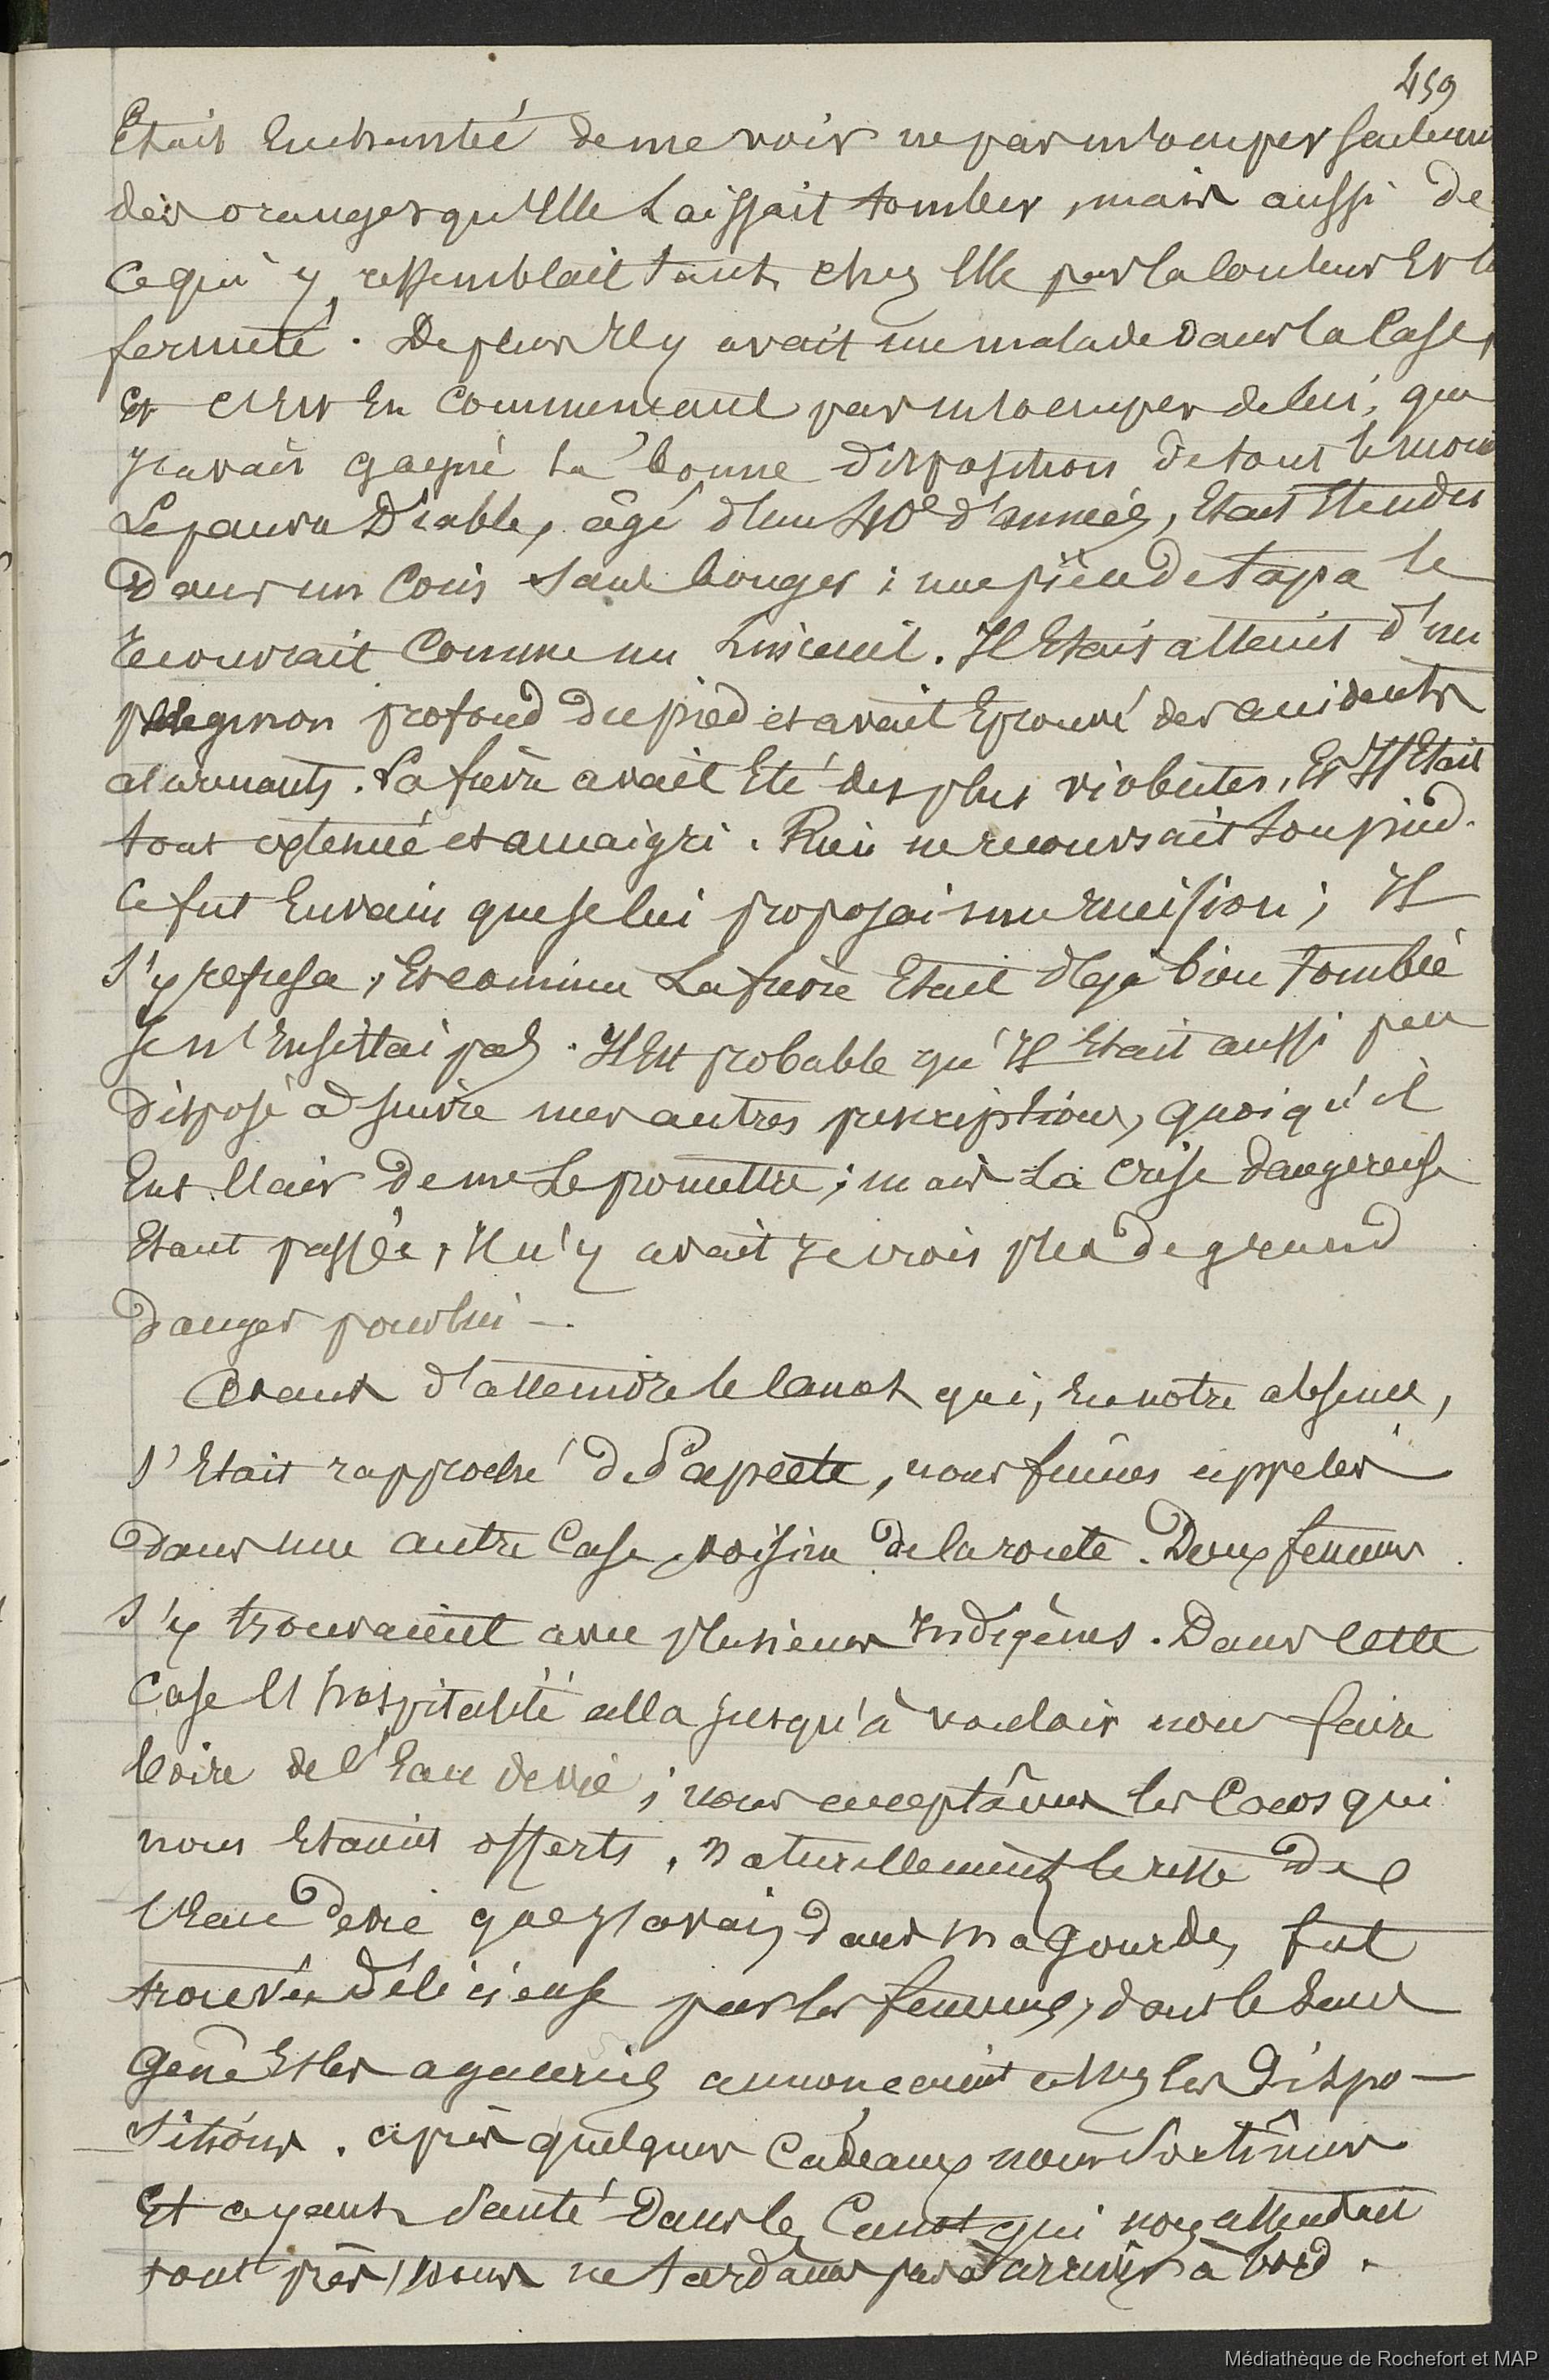 459
Etait Enchantée de me voir ne pas m'occuper seulem
des oranges qu'Elle Laissait tomber, mais aussi de
Ce qui y ressemblait tant chez Elle par la couleur Et la
fermeté. De plus Il y avait un malade dans la Case,
Et c'Est En Commencant par m'occuper de lui, que
J'avais gagné la bonne disposition de tout le mon
Le pauvre Diable, âgé d'une 40e d'années, Etait Etendu
Dans un Coin sans bouger ; une pièce de tapa le
recouvrait Comme un Linceuil. Il Etait atteint d'un
phlegmon profond du pied et avait Eprouvé des accidents
alarmants. La fièvre avait Eté des plus violentes, Et Il Etait
tout exténué et amaigri. Rien ne recouvrait son pied.
Ce fut En vain que je lui proposai une incision ; Il
s'y refusa, Et comme La fièvre Etait déja bien tombée
je n'insistai pas. Il Est probable qu'Il Etait aussi peu
Disposé à suivre mes autres prescriptions, quoiqu'il
Eut l'air de me Le promettre ; mais La Crise dangereuse
Etant passée, Il n'y avait Je crois plus de grand
Danger pour lui —.
Avant d'atteindre le Canot qui, En notre absence,
s'Etait rapproché de Papeete, nous fûmes appelés
Dans une autre Case, voisine de la route. Deux femmes
s'y trouvaient avec plusieurs Indigènes. Dans Cette
Case l'hospitalité alla jusqu'à vouloir nous faire
boire de l'Eau de vie ; nous acceptâmes les Cocos qui
nous Etaient offerts. Naturellement le reste de
l'Eau de vie que J'avais dans ma gourde, fut
trouvée Délicieuse par les femmes, dont le sans
Gêne Et les agaceries annoncaient assez les Dispo-
sitions. Après quelques Cadeaux nous sortîmes
Et ayant sauté Dans le Canot qui nous attendait
tout près, nous ne tardâmes pas à arriver à bord.
Médiathèque de Rochefort et MAP